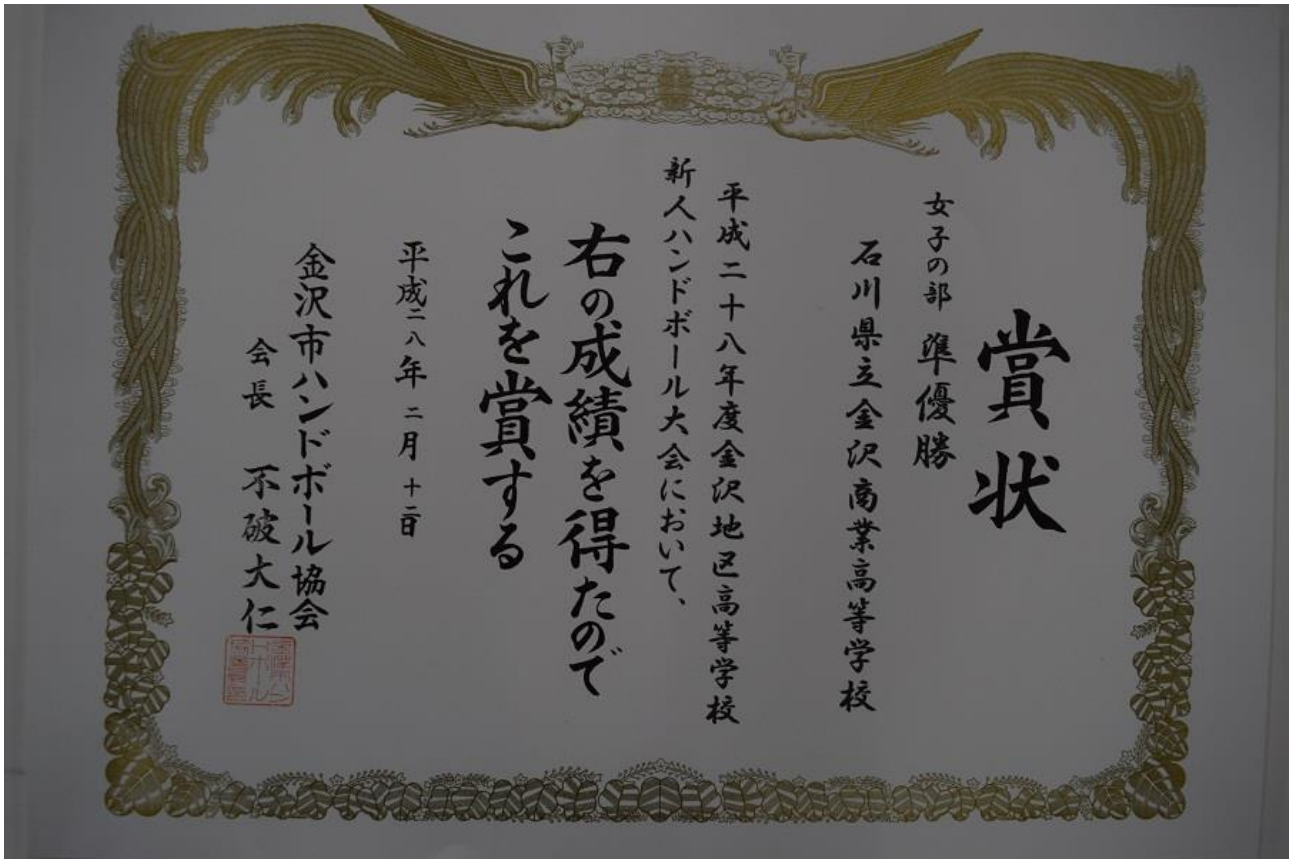 賞状
女子の部 準優勝
石川県立金沢商業高等学校
平成二十八年度金沢地区高等学校
新人ハンドボール大会において、
右の成績を得たので
これを賞する
平成二八年 二月 十二日
金沢市ハンドボール協会
会長 不破大仁